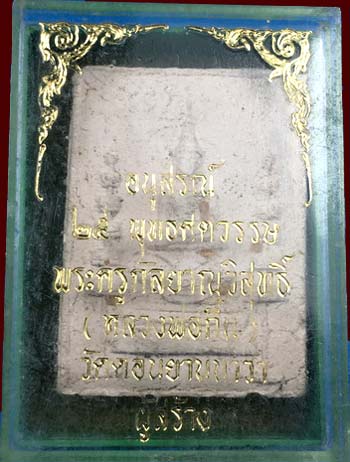 อนุสรณ์
๒๕ พุทธศตวรรษ
พระครูกัลยาณวิสุทธิ์
( หลวงพ่อตั๊น )
วัดดอนยานนาวา
ผู้สร้าง